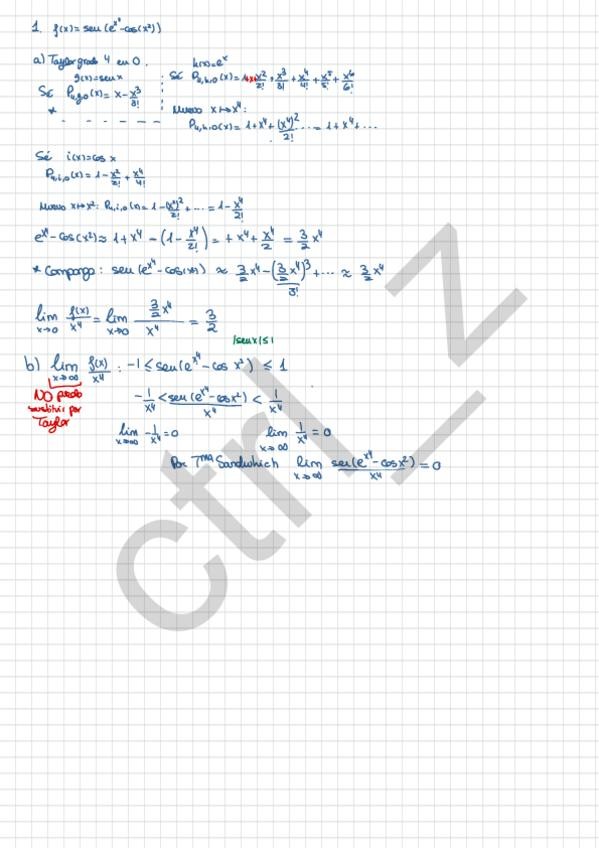 1. f(x) = sen(e^{x^4} - cos(x²))
a) Taylor grado 4 en 0.
g(x) = sen x
Sé P_{4,g,0}(x) = x - x³/3!
*
h(x) = e^x
Sé P_{4,h,0}(x) = 1+x+x²/2! + x³/3! + x⁴/4! + x⁵/5! + x⁶/6!
Nuevo x↦x⁴:
P_{4,h,0}(x) = 1+x⁴+(x⁴)²/2! ... = 1+x⁴+...
Sé i(x) = cos x
P_{4,i,0}(x) = 1 - x²/2! + x⁴/4!
Nuevo x↦x²: P_{4,i,0}(x) = 1 - (x²)²/2! + ... = 1 - x⁴/2!
e^{x^4} - cos(x²) ≈ 1+x⁴ - (1 - x⁴/2!) = +x⁴ + x⁴/2 = 3/2 x⁴
* Compongo: sen(e^{x^4} - cos(x²)) ≈ 3/2 x⁴ - (3/2 x⁴)³/3! + ... ≈ 3/2 x⁴
lim x→0 f(x)/x⁴ = lim x→0 3/2 x⁴ / x⁴ = 3/2
|sen x| ≤ 1
b) lim x→∞ f(x)/x⁴ : -1 ≤ sen(e^{x^4} - cos x²) ≤ 1
NO puedo
sustituir por
Taylor
-1/x⁴ < sen(e^{x^4} - cos x²)/x⁴ < 1/x⁴
lim x→∞ -1/x⁴ = 0 lim x→∞ 1/x⁴ = 0
Por Tma Sandwhich lim x→∞ sen(e^{x^4} - cos x²)/x⁴ = 0
ctrl_z